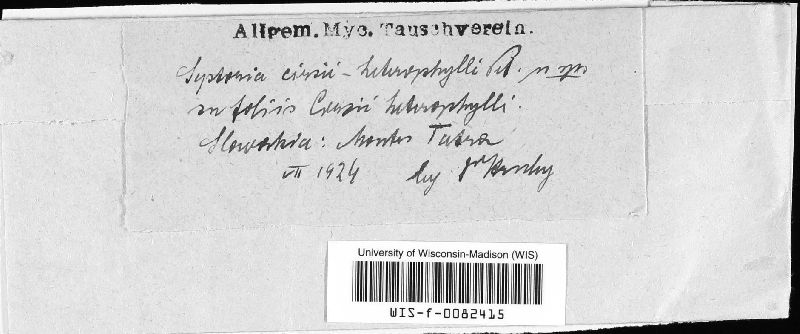 Allgem. Myc. Tauschverein.
Septoria cirsii-heterophylli Pet. n sp
in foliis Cirsii heterophylli.
Slowakia: Montes Tatra
VII 1924 leg Hruby
University of Wisconsin-Madison (WIS)
WIS-f-0082415